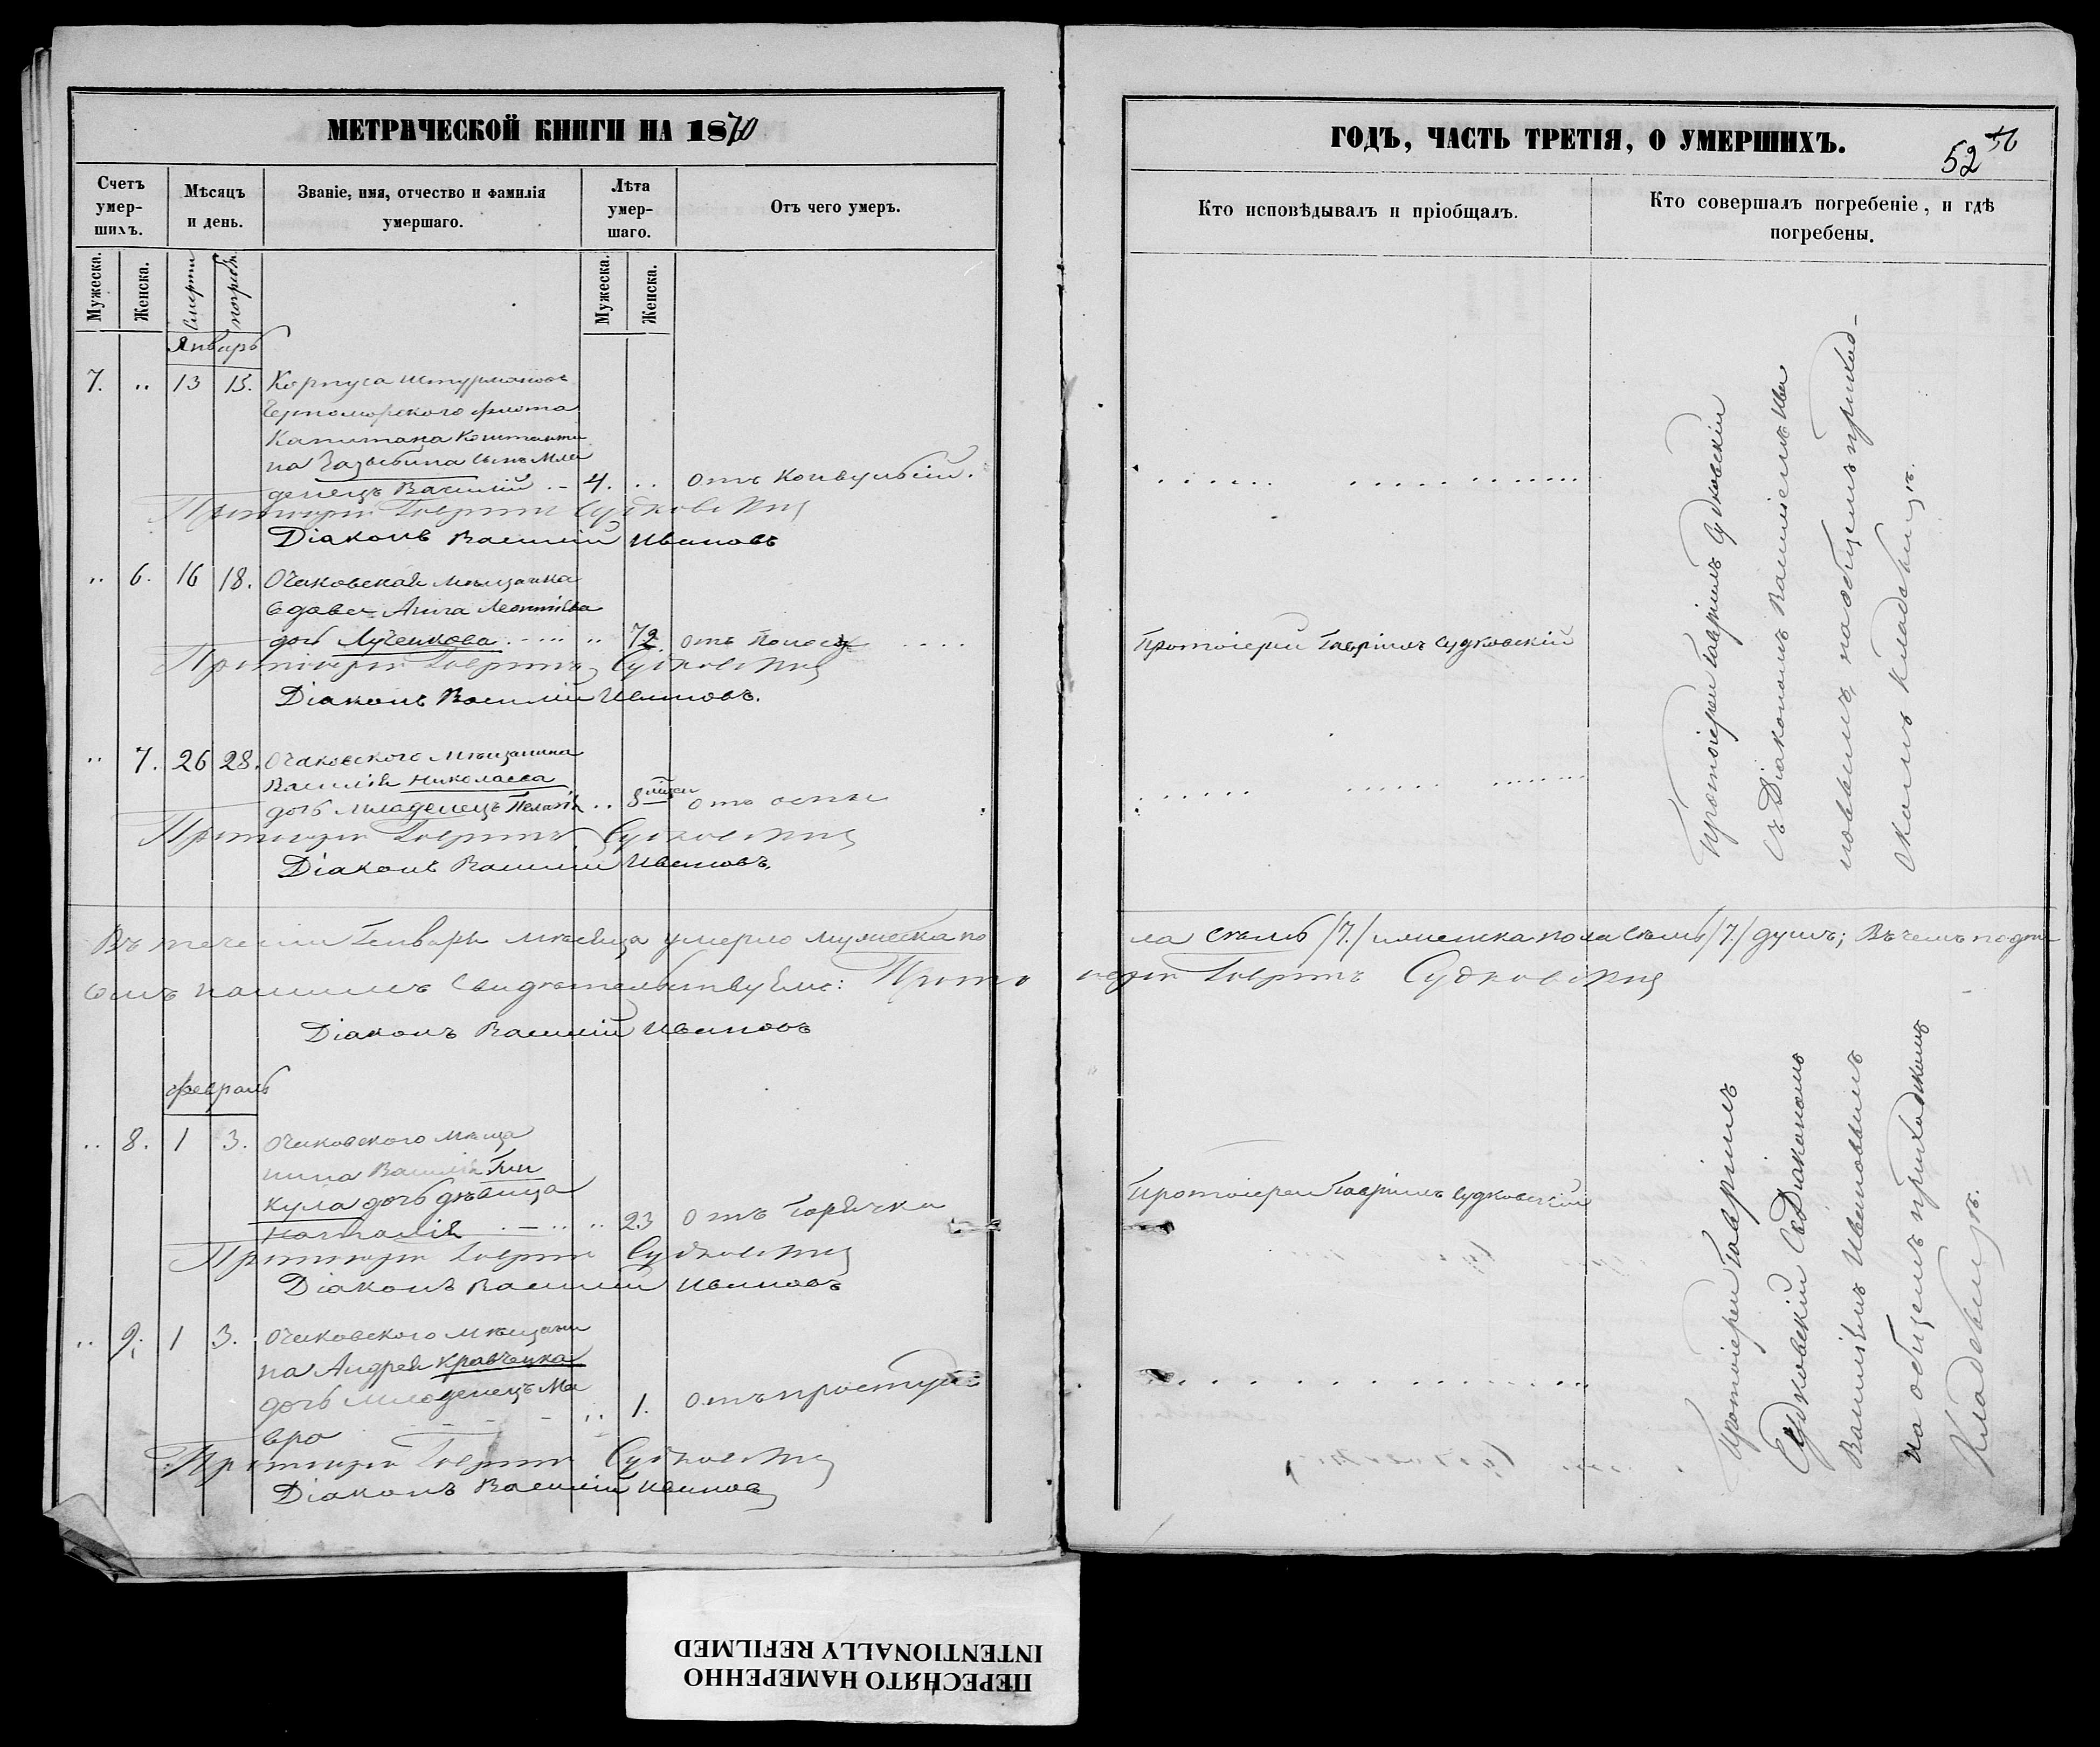 МЕТРИЧЕСКОЙ КНИГИ НА 1870
Счетъ умер-шихъ.
Мѣсяцъ и день.
Званіе, имя, отчество и фамилія умершаго.
Лѣта умер-шаго.
Отъ чего умеръ.
Мужеска.
Женска.
Смерти
погреб.
Мужеска.
Женска.
Январь
7. „ 13 15. Корпуса Штурмановъ
Черноморскаго флота
Капитана Константи
на сынъ Мла
денецъ Василій 4. „ отъ Конвульсій.
Протоіерей Гавріилъ Судковскій
Діаконъ Василій Ивановъ
„ 6. 16 18. Очаковская мѣщанка
вдова Анна Леонтіева
дочь Лученкова „ 72. отъ поноса
Протоіерей Гавріилъ Судковскій
Діаконъ Василій Ивановъ.
„ 7. 26 28. Очаковскаго мѣщанина
Василія Николаева
дочь младенецъ Пелагія „ 8 мѣсяц отъ оспы
Протоіерей Гавріилъ Судковскій
Діаконъ Василій Ивановъ.
Въ теченіи Генваря мѣсяца умерло мужеска по
семъ нашимъ свидѣтельствуемъ: Прото
Діаконъ Василій Ивановъ
Февраль
„ 8. 1 3. Очаковскаго мѣща
нина Василія Гин
кула дочь дѣвица
Наталія „ 23 отъ Горячки
Протоіерей Гавріилъ Судковскій
Діаконъ Василій Ивановъ
„ 9. 1 3. Очаковскаго мѣщани
на Андрея Кравченка
дочь младенецъ Ма
вра „ 1. отъ простуды
Протоіерей Гавріилъ Судковскій
Діаконъ Василій Ивановъ
ГОДЪ, ЧАСТЬ ТРЕТІЯ, О УМЕРШИХЪ.
52
Кто исповѣдывалъ и пріобщалъ.
Кто совершалъ погребеніе, и гдѣ погребены.
Протоіерей Гавріилъ Судковскій
Протоіерей Гавріилъ Судковскій
съ Діакономъ Василіемъ Ива
новымъ, на общемъ приход-
скомъ кладбищѣ.
ла семь /7./ и женска пола семь /7./ душъ; Въ чемъ подпи
іерей Гавріилъ Судковскій
Протоіерей Гавріилъ Судковскій
Протоіерей Гавріилъ
Судковскій съ Діакономъ
Василіемъ Ивановымъ
на общемъ приходскомъ
Кладбищѣ.
ПЕРЕСНЯТО НАМЕРЕННО
INTENTIONALLY REFILMED